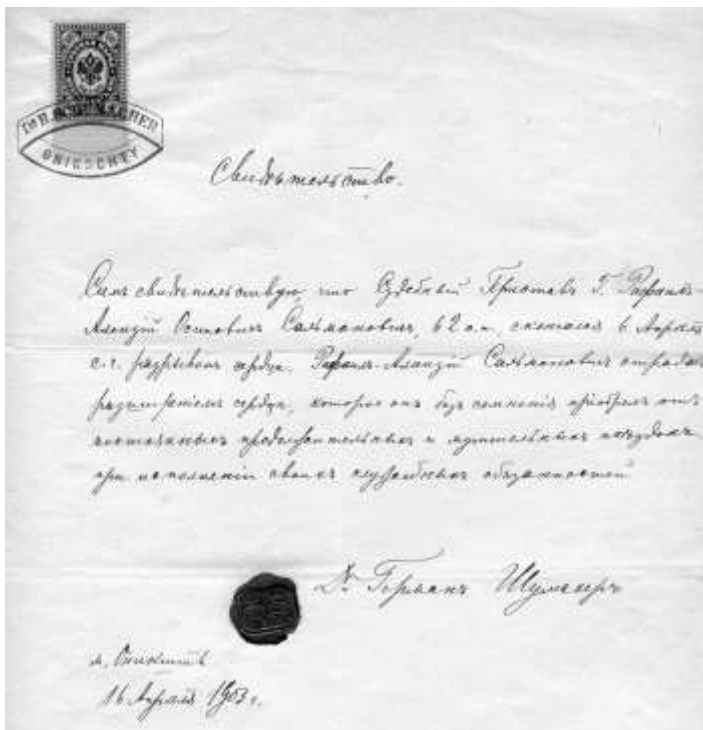 Dr H. SCHUMACHER
ONIKSCHTY
Свидѣтельство.
Симъ свидѣтельствую, что Судебный Приставъ Г. Рафаилъ-
Алоизій Осиповичъ Сальмоновичъ, 62 л., скончался 6 Апрѣля
с.г. разрывомъ сердца. Рафаилъ-Алоизій Сальмоновичъ страдалъ
расширеніемъ сердца, которое онъ безъ сомнѣнія пріобрѣлъ отъ
продолжительныхъ и мучительныхъ поѣздокъ
при исполненіи своихъ служебныхъ обязанностей
Dr Германъ Шумахеръ
м. Оникшты
16 Апрѣля 1903 г.